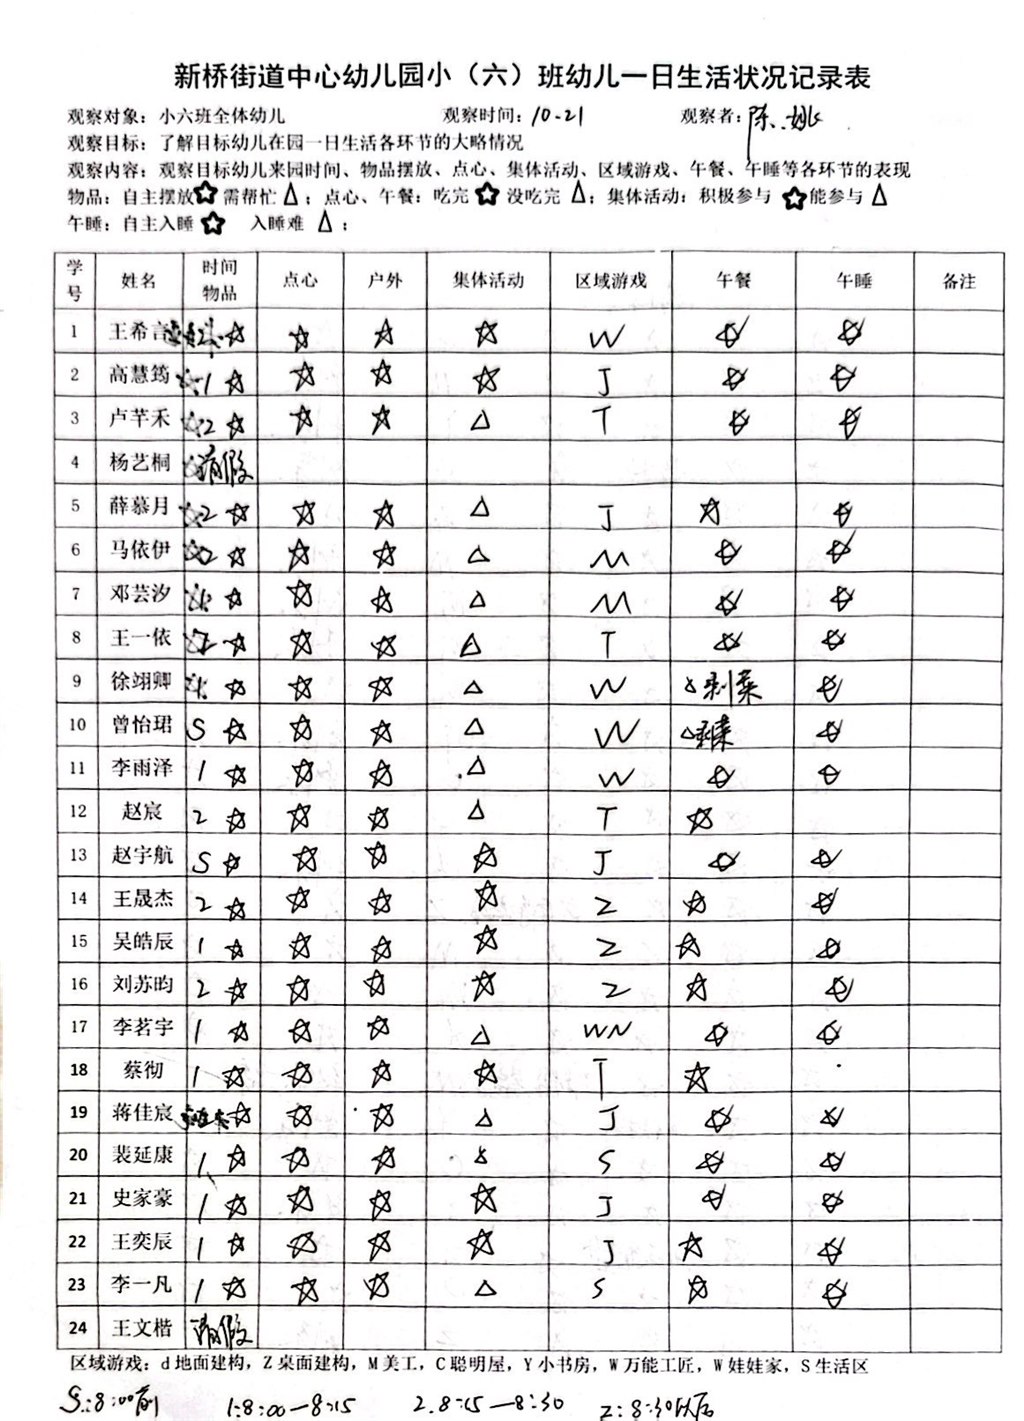 新桥街道中心幼儿园小（六）班幼儿一日生活状况记录表
观察对象：小六班全体幼儿 观察时间：10-21 观察者：陈、姚
观察目标：了解目标幼儿在园一日生活各环节的大略情况
观察内容：观察目标幼儿来园时间、物品摆放、点心、集体活动、区域游戏、午餐、午睡等各环节的表现
物品：自主摆放☆需帮忙△；点心、午餐：吃完☆没吃完△；集体活动：积极参与☆能参与△
午睡：自主入睡☆ 入睡难△；
学号 姓名 时间物品 点心 户外 集体活动 区域游戏 午餐 午睡 备注
1 王希言 ☆ ☆ ☆ ☆ W ☆ ☆
2 高慧筠 1 ☆ ☆ ☆ ☆ J ☆ ☆
3 卢芊禾 2 ☆ ☆ ☆ △ T ☆ ☆
4 杨艺桐 请假
5 薛慕月 2 ☆ ☆ ☆ △ J ☆ ☆
6 马依伊 2 ☆ ☆ ☆ △ M ☆ ☆
7 邓芸汐 ☆ ☆ ☆ △ M ☆ ☆
8 王一依 ☆ ☆ ☆ △ T ☆ ☆
9 徐翊卿 ☆ ☆ ☆ △ W △剩菜 ☆
10 曾怡珺 S ☆ ☆ ☆ △ W △剩菜 ☆
11 李雨泽 1 ☆ ☆ ☆ △ W ☆ ☆
12 赵宸 2 ☆ ☆ ☆ △ T ☆
13 赵宇航 S ☆ ☆ ☆ ☆ J ☆ ☆
14 王晟杰 2 ☆ ☆ ☆ ☆ Z ☆ ☆
15 吴皓辰 1 ☆ ☆ ☆ ☆ Z ☆ ☆
16 刘苏昀 2 ☆ ☆ ☆ ☆ Z ☆ ☆
17 李茗宇 1 ☆ ☆ ☆ △ WN ☆ ☆
18 蔡彻 1 ☆ ☆ ☆ ☆ T ☆
19 蒋佳宸 ☆ ☆ ☆ △ J ☆ ☆
20 裴延康 1 ☆ ☆ ☆ △ S ☆ ☆
21 史家豪 1 ☆ ☆ ☆ ☆ J ☆ ☆
22 王奕辰 1 ☆ ☆ ☆ ☆ J ☆ ☆
23 李一凡 1 ☆ ☆ ☆ △ S ☆ ☆
24 王文楷 请假
区域游戏：d地面建构，Z桌面建构，M美工，C聪明屋，Y小书房，W万能工匠，W娃娃家，S生活区
S:8:00前 1:8:00—8:15 2.8:15—8:30 Z:8:30以后